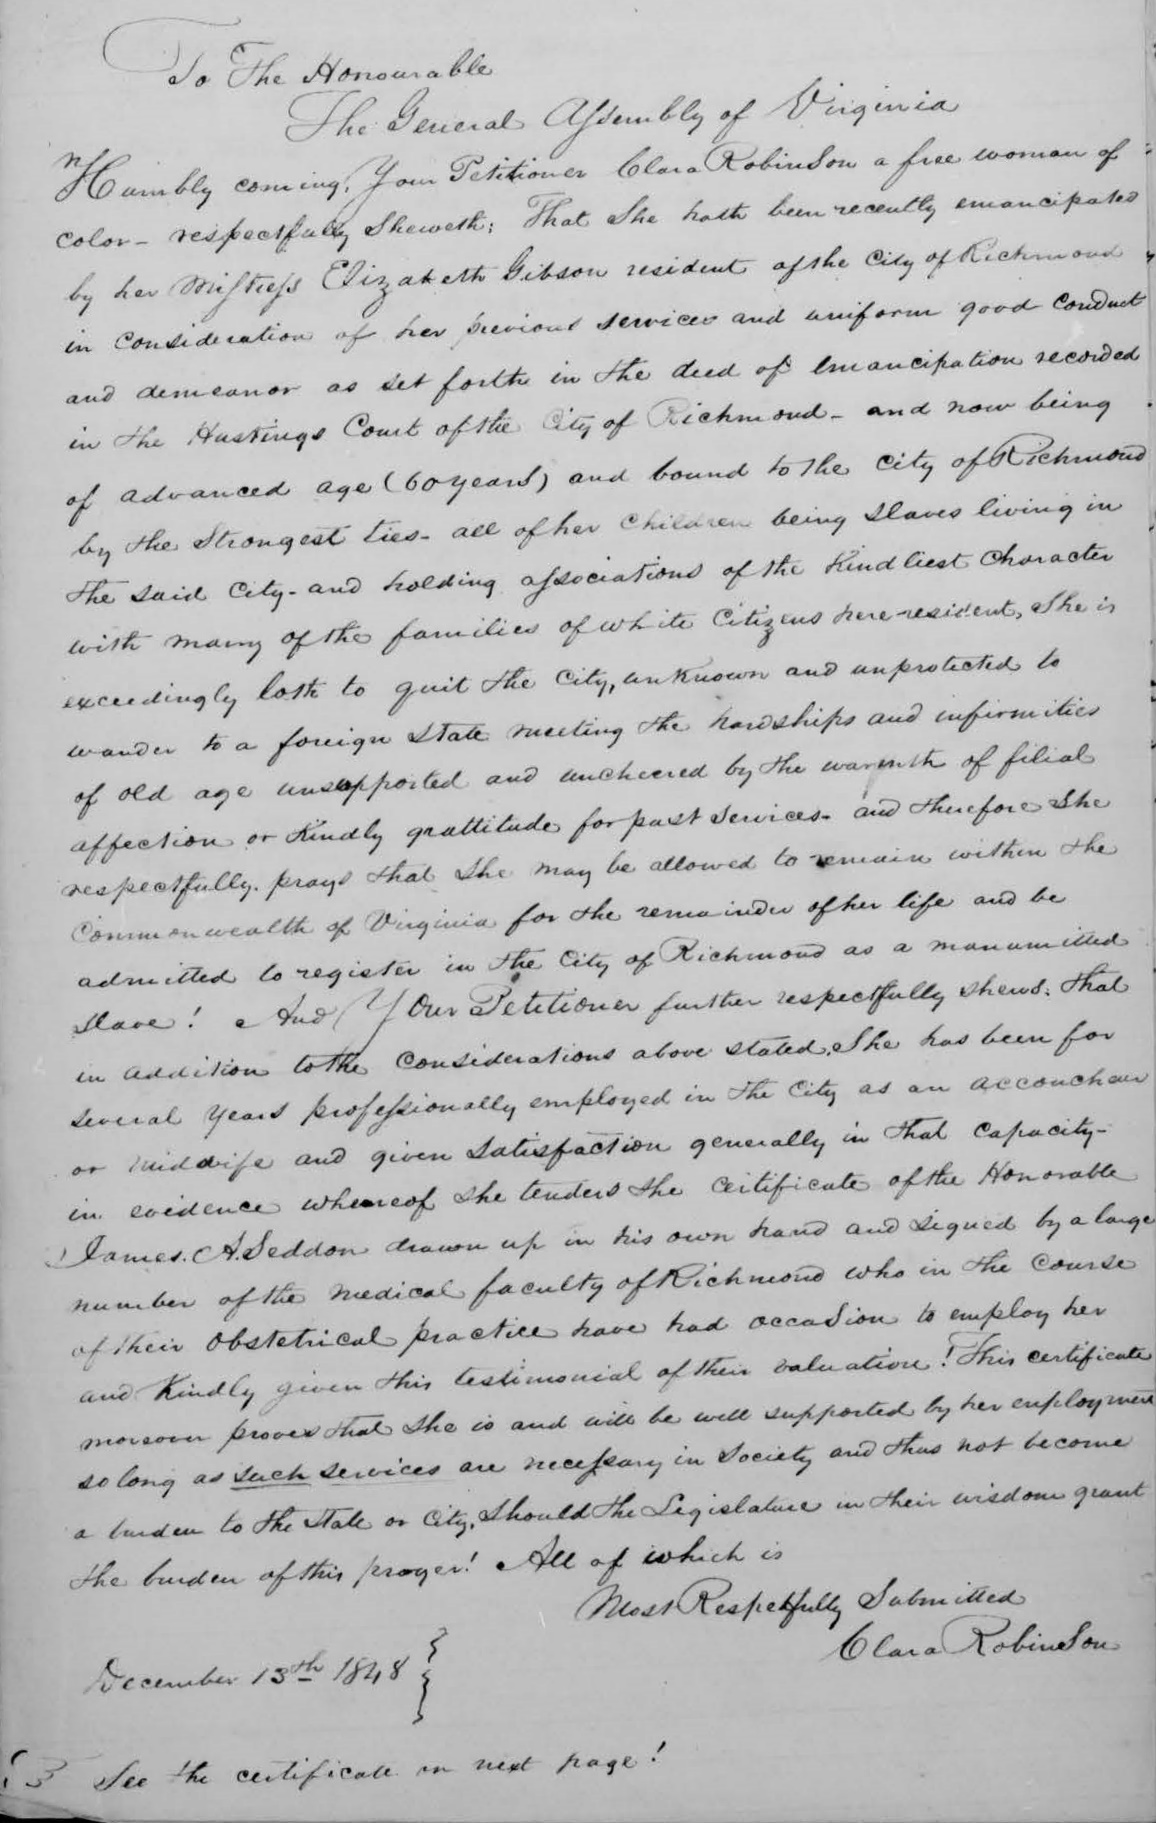 To The Honourable
The General Assembly of Virginia
Humbly coming, Your Petitioner Clara Robinson a free woman of
color - respectfully Sheweth; That She hath been recently emancipated
by her Mistress Elizabeth Gibson resident of the City of Richmond
in consideration of her previous services and uniform good conduct
and demeanor as set forth in the deed of emancipation recorded
in the Hustings Court of the City of Richmond - and now being
of advanced age (60 years) and bound to the City of Richmond
by the Strongest ties - all of her children being slaves living in
the said City - and holding associations of the Kindliest Character
with many of the families of white Citizens here resident, She is
exceedingly loth to quit the City, unknown and unprotected to
wander to a foreign State meeting the hardships and infirmities
of old age unsupported and uncheered by the warmth of filial
affection or Kindly grattitude for past services - and therefore She
respectfully prays that she may be allowed to remain within the
Commonwealth of Virginia for the remainder of her life and be
admitted to register in the City of Richmond as a manumitted
slave! And Your Petitioner further respectfully shews: that
in addition to the considerations above stated, She has been for
several years professionally employed in the City as an accoucheur
or midwife and given satisfaction generally in that capacity -
in evidence whereof she tenders the certificate of the Honorable
James. A. Seddon drawn up in his own hand and signed by a large
number of the medical faculty of Richmond who in the course
of their obstetrical practice have had occasion to employ her
and Kindly given this testimonial of their valuation! This certificate
moreover proves that she is and will be well supported by her employment
so long as such services are necessary in Society and thus not become
a burden to the State or City, Should the Legislature in their wisdom grant
the burden of this prayer! All of which is
Most Respectfully Submitted
Clara Robinson
December 13th 1848
See the certificate on next page!